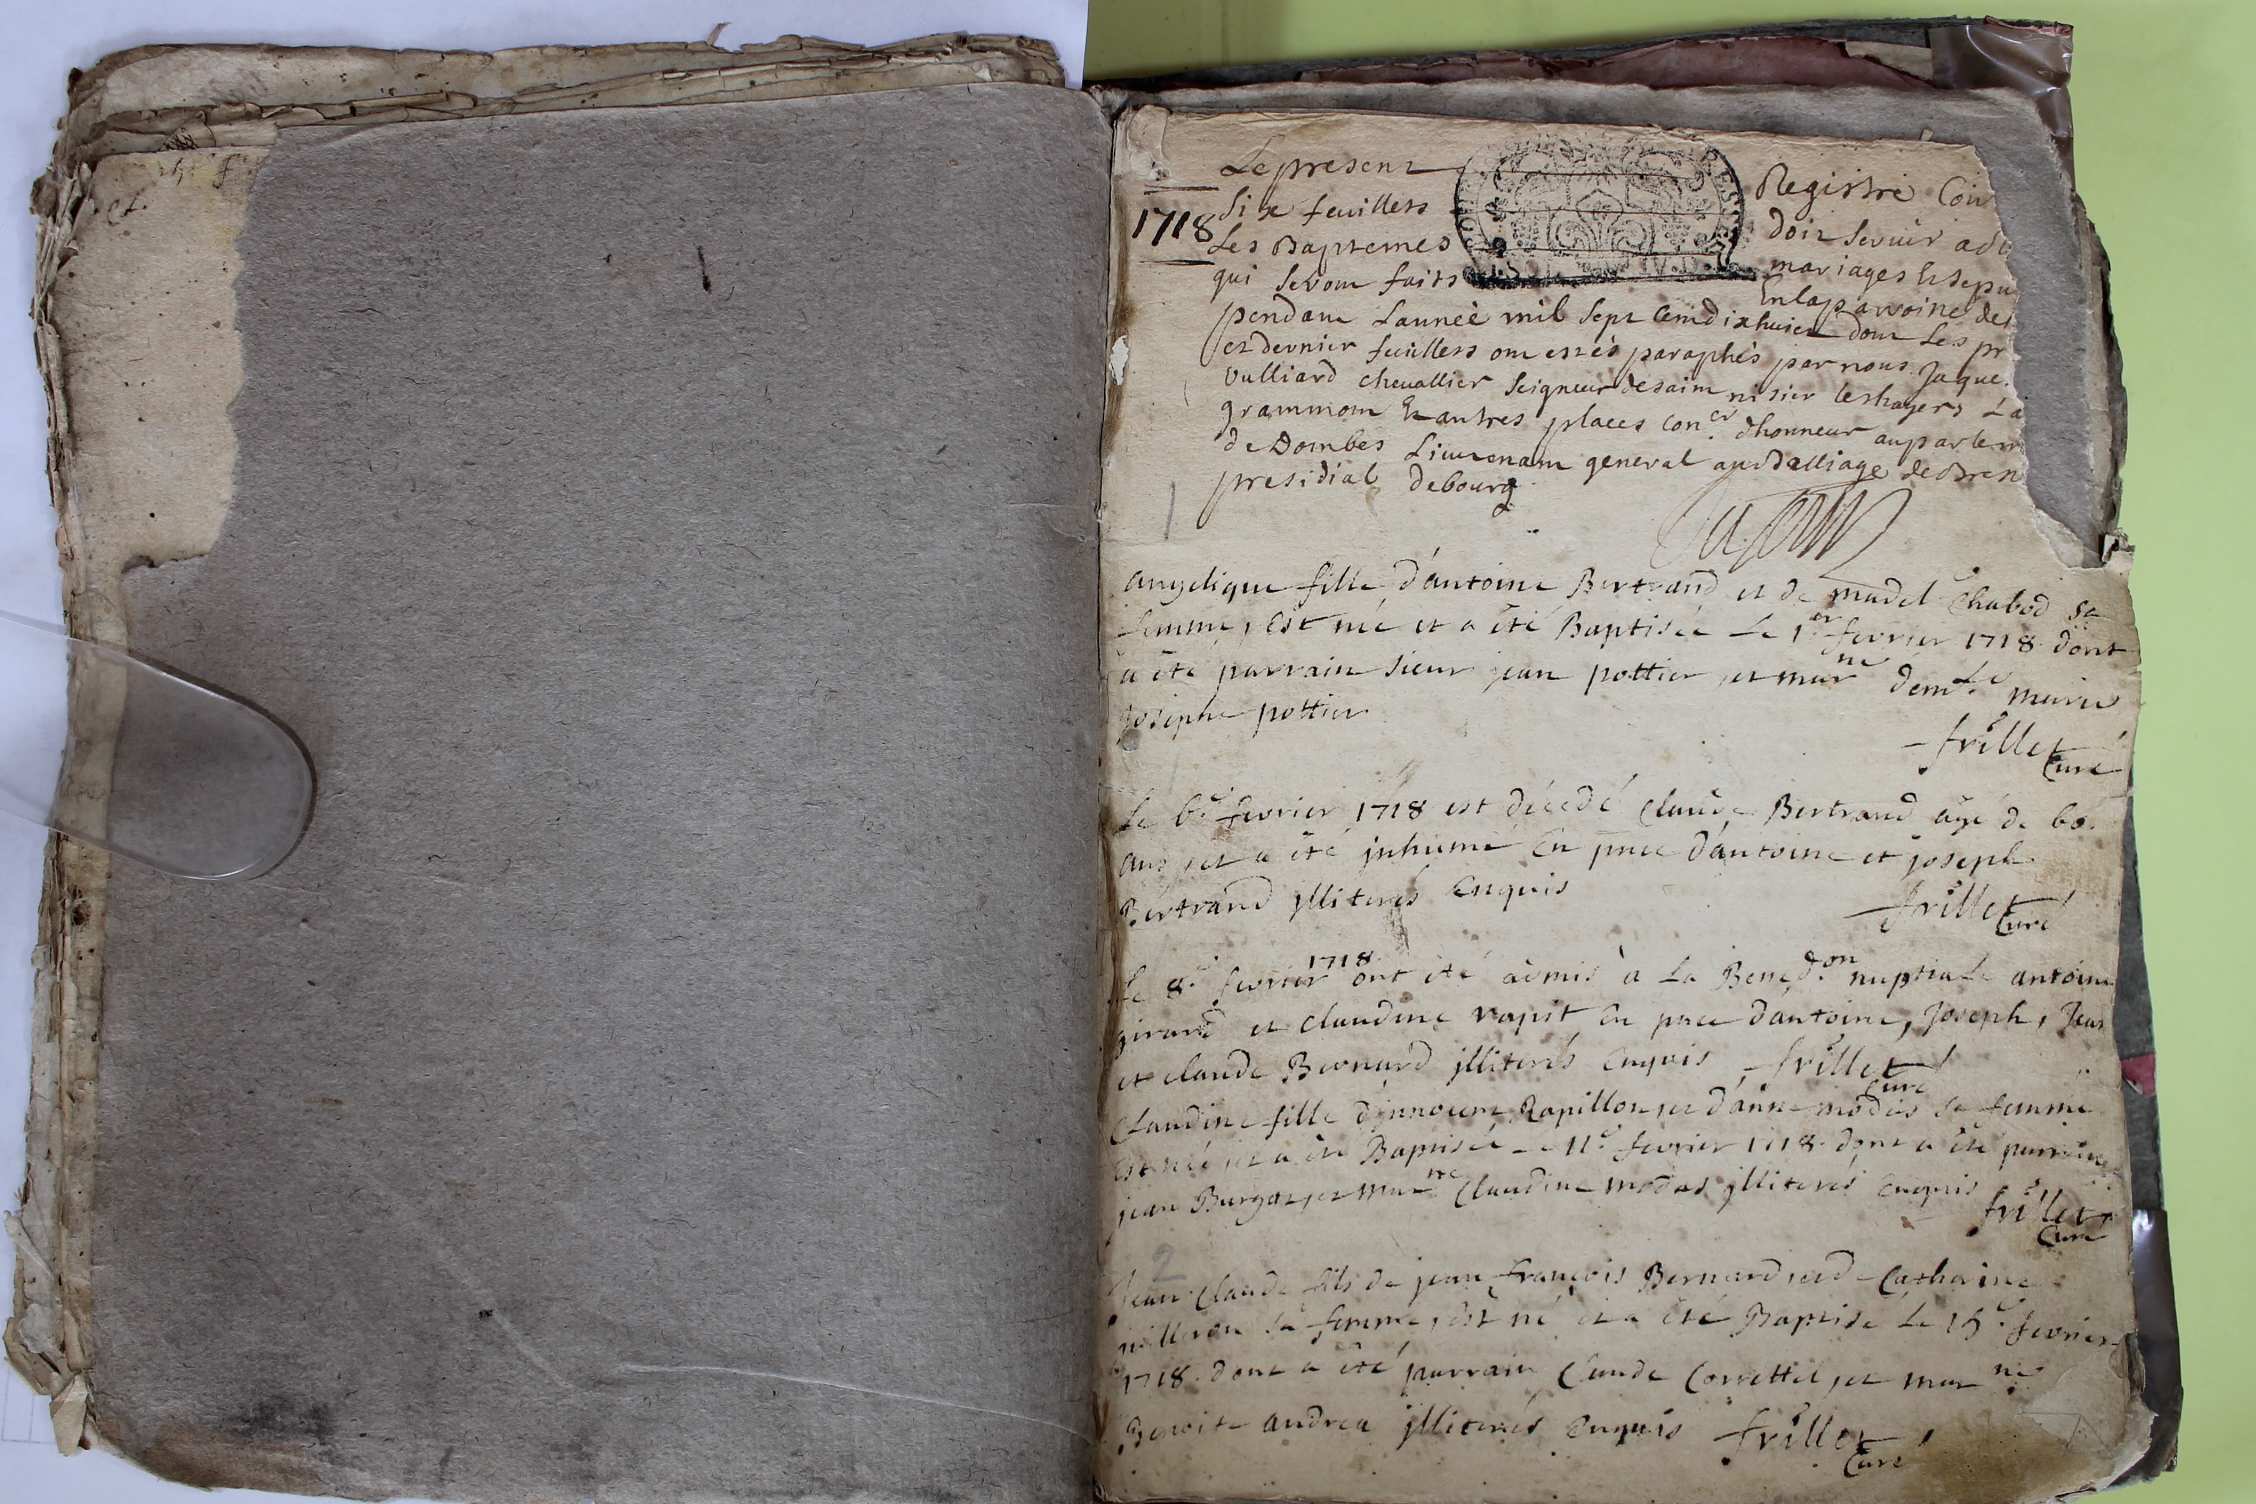 Le present Registre Con
1718
Six feuillets doit servir a
Les Baptemes mariages Et sepu
qui seront faits En la parroine de
pendant L'année mil sept cent dix huict dont Les pr
et dernier feuillets ont estés paraphés par nous Jaque
Vulliard chevallier Seigneur de saint nisier les hayers La
grammont Et autres places con.er d'honneur au parlem
de Dombes Lieutenant general au Balliage de Bres
presidial de bourg
1
angelique fille d'antoine Bertrand et de madel Chabod sa
femme, est née et a été Baptisée Le 1.er fevrier 1718 dont
a été parrain sieur jean pottier et mar.ne dem.lle marie
josephe pottier
frillet
Curé
Le 6.e fevrier 1718 est décedé Claude Bertrand agé de 60.
ans et a été jnhumé En pnce d'antoine et joseph
Bertrand jlliterés Enquis
frillet
Curé
Le 8.e fevrier 1718 ont été admis à La Bened.on nuptiale antoine
girard et Claudine rapit En pnce d'antoine, Joseph, Jean
et claude Bernard jlliterés Enquis frillet
Curé
Claudine fille d'jnnocent Rapillon et d'anne modas sa femme
est née et a été Baptisée Le 11.e fevrier 1718 dont a été parrain
jean Burgat et mar.ne Claudine modas jlliterés Enquis frillet
Curé
2
Jean Claude fils de jean françois Bernard et d Catherine
sa femme, est né et a été Baptisé Le 15.e fevrier
1718. dont a été parrain Claude Correttel, et mar.ne
Benoite andrea jlliterés Enquis frillet
Curé